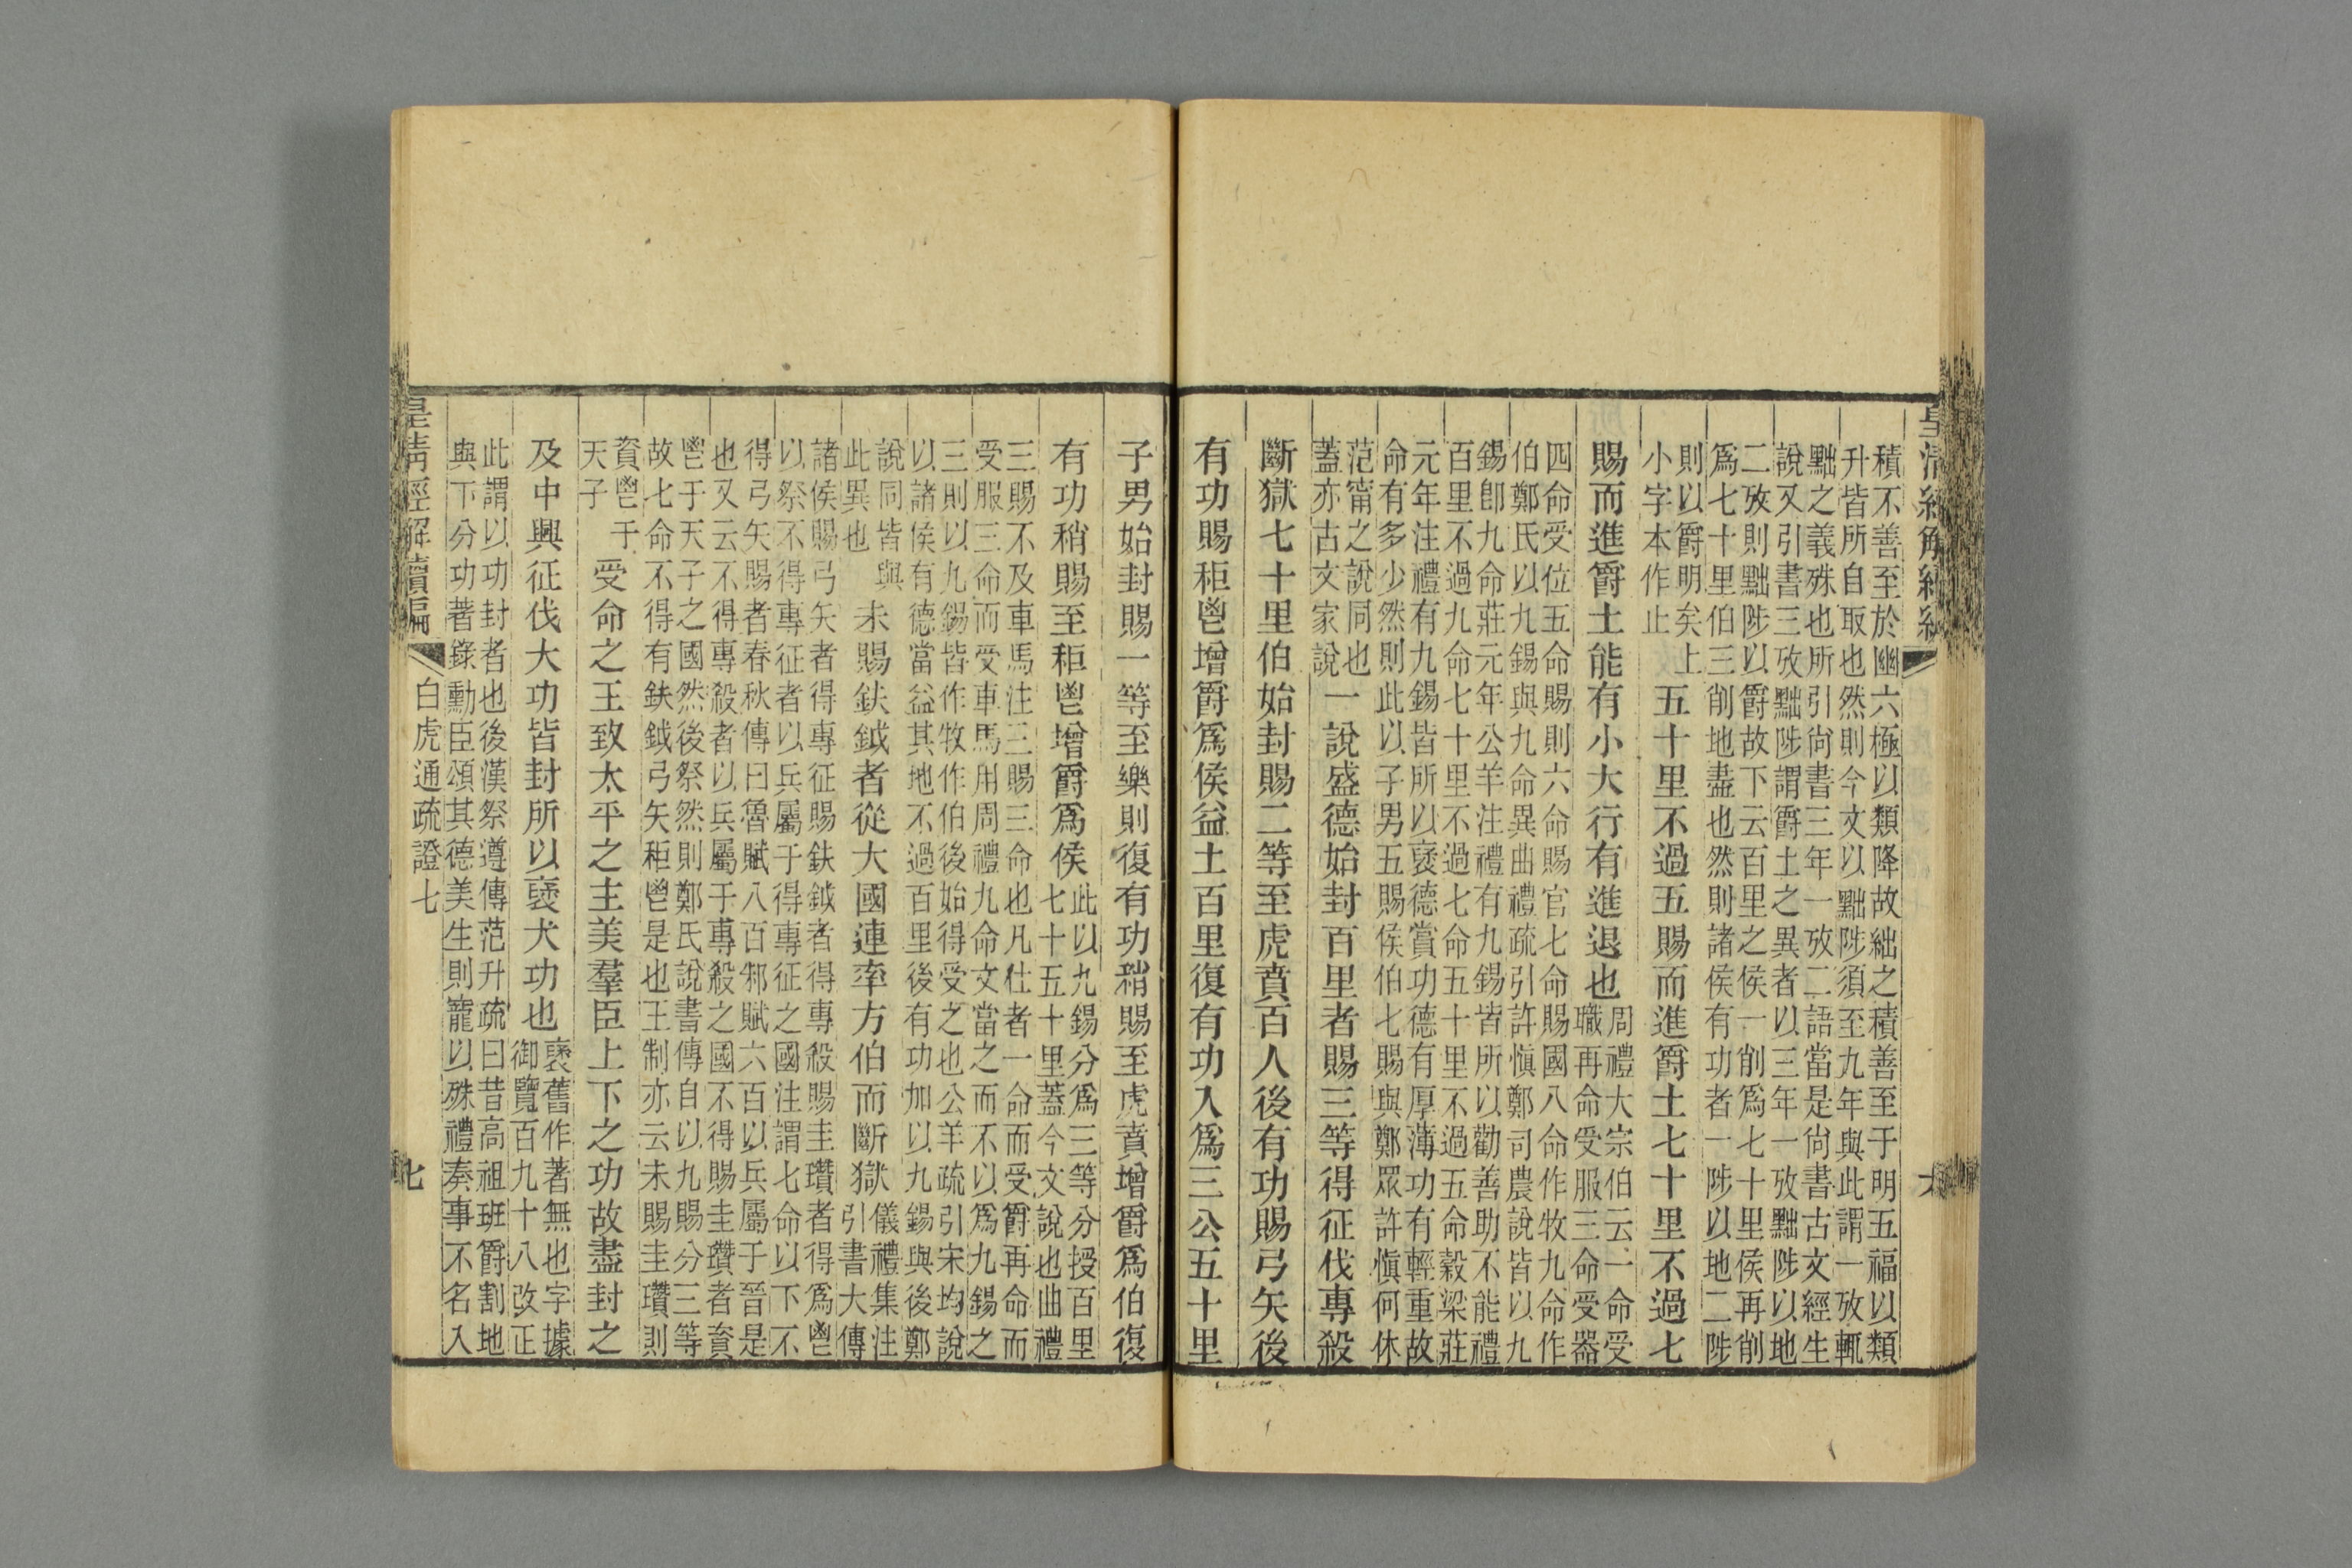 積不善至於幽六極以類降故絀之積善至于明五福以類
升皆所自取也然則今文以黜陟須至九年與此謂一攷輒
黜之義殊也所引尙書三年一攷二語當是尙書古文經生
說又引書三攷黜陟謂爵土之異者以三年一攷黜陟以地
二攷則黜陟以爵故下云百里之侯一削爲七十里侯再削
爲七十里伯三削地盡也然則諸侯有功者一陟以地二陟
則以爵明矣上
小字本作止
五十里不過五賜而進爵土七十里不過七
賜而進爵土能有小大行有進退也
周禮大宗伯云一命受
職再命受服三命受器
四命受位五命賜則六命賜官七命賜國八命作牧九命作
伯鄭氏以九錫與九命異曲禮疏引許愼鄭司農說皆以九
錫卽九命莊元年公羊注禮有九錫皆所以勸善助不能禮
百里不過九命七十里不過七命五十里不過五命穀梁莊
元年注禮有九錫皆所以襃德賞功德有厚薄功有輕重故
命有多少然則此以子男五賜侯伯七賜與鄭眾許愼何休
范甯之說同也
蓋亦古文家說
一說盛德始封百里者賜三等得征伐專殺
斷獄七十里伯始封賜二等至虎賁百人後有功賜弓矢後
有功賜秬鬯增爵爲侯益土百里復有功入爲三公五十里
子男始封賜一等至樂則復有功稍賜至虎賁增爵爲伯復
有功稍賜至秬鬯增爵爲侯
此以九錫分爲三等分授百里
七十五十里蓋今文說也曲禮
三賜不及車馬注三賜三命也凡仕者一命而受爵再命而
受服三命而受車馬用周禮九命文當之而不以爲九錫之
三則以九錫皆作牧作伯後始得受之也公羊疏引宋均說
以諸侯有德當益其地不過百里後有功加以九錫與後鄭
說同皆與
此異也
未賜鈇鉞者從大國連率方伯而斷獄
儀禮集注
引書大傳
諸侯賜弓矢者得專征賜鈇鉞者得專殺賜圭瓚者得爲鬯
以祭不得專征者以兵屬于得專征之國注謂七命以下不
得弓矢賜者春秋傳曰魯賦八百邾賦六百以兵屬于晉是
也又云不得專殺者以兵屬于專殺之國不得賜圭瓚者資
鬯于天子之國然後祭然則鄭氏說書傳自以九賜分三等
故七命不得有鈇鉞弓矢秬鬯是也王制亦云未賜圭瓚則
資鬯于
天子
受命之王致太平之主美羣臣上下之功故盡封之
及中興征伐大功皆封所以襃大功也
襃舊作著無也字據
御覽百九十八改正
此謂以功封者也後漢祭遵傳范升疏曰昔高祖班爵割地
與下分功著錄勳臣頌其德美生則寵以殊禮奏事不名入
皇清經解續編
白虎通疏證七
七